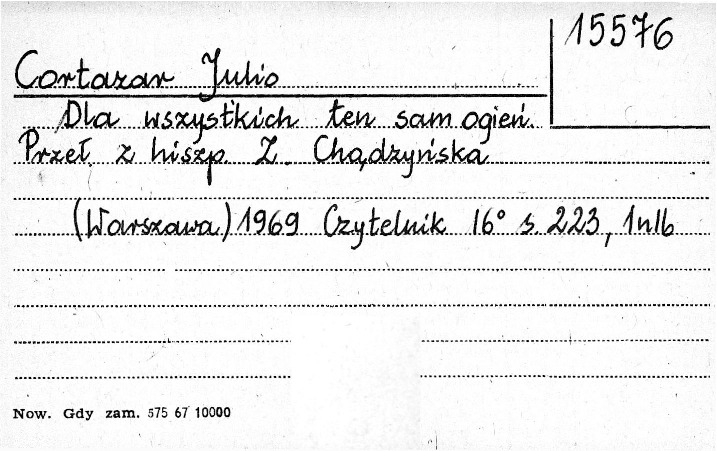 15576
Cortazar Julio
Dla wszystkich ten sam ogień.
Przeł. z hiszp. Z. Chądzyńska
(Warszawa) 1969 Czytelnik 16° s. 223, 1 nlb
Now. Gdy zam. 575 67 10000